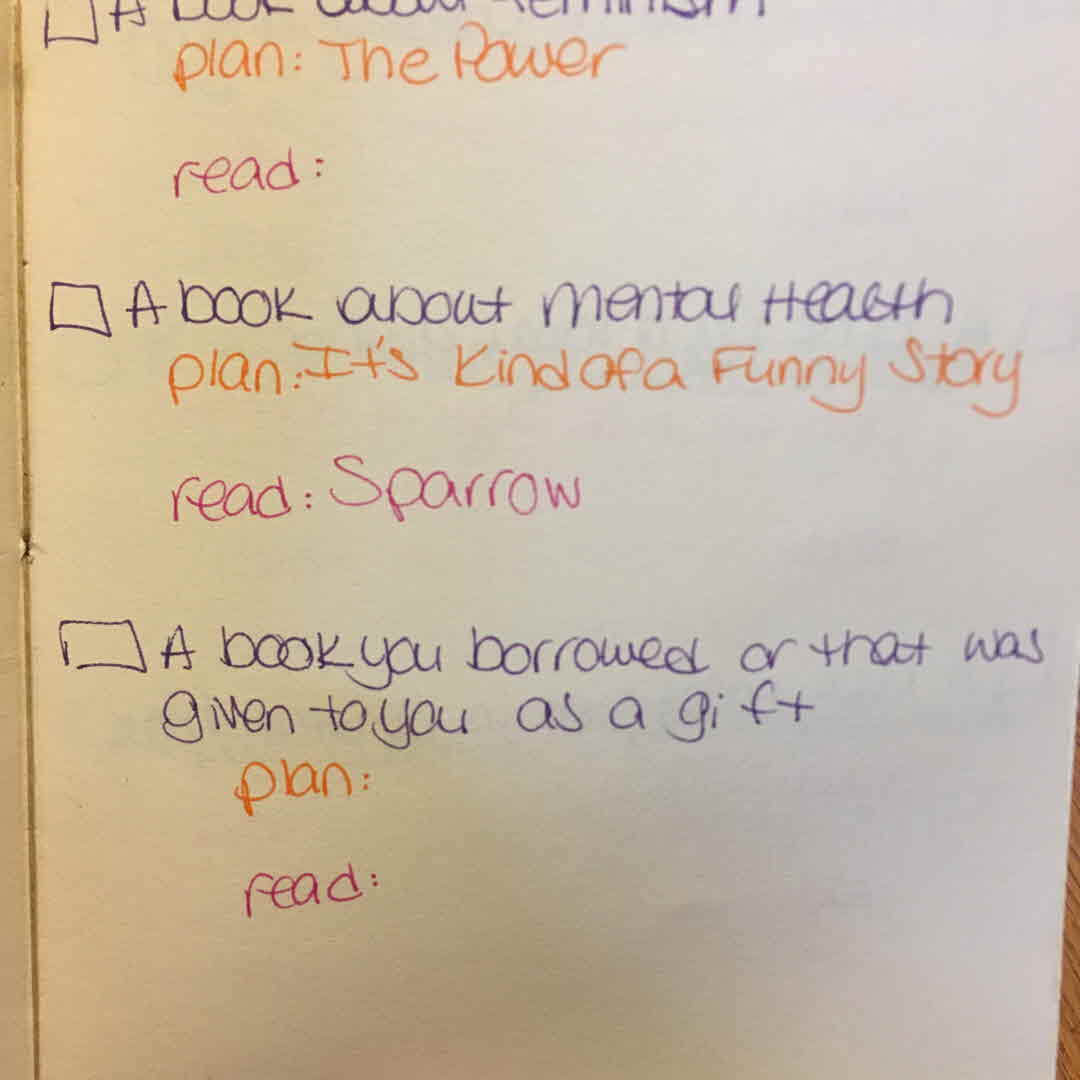 A book about feminism
plan: The Power
read:
A book about mental Health
plan: It's Kind of a Funny Story
read: Sparrow
A book you borrowed or that was
given to you as a gift
plan:
read: